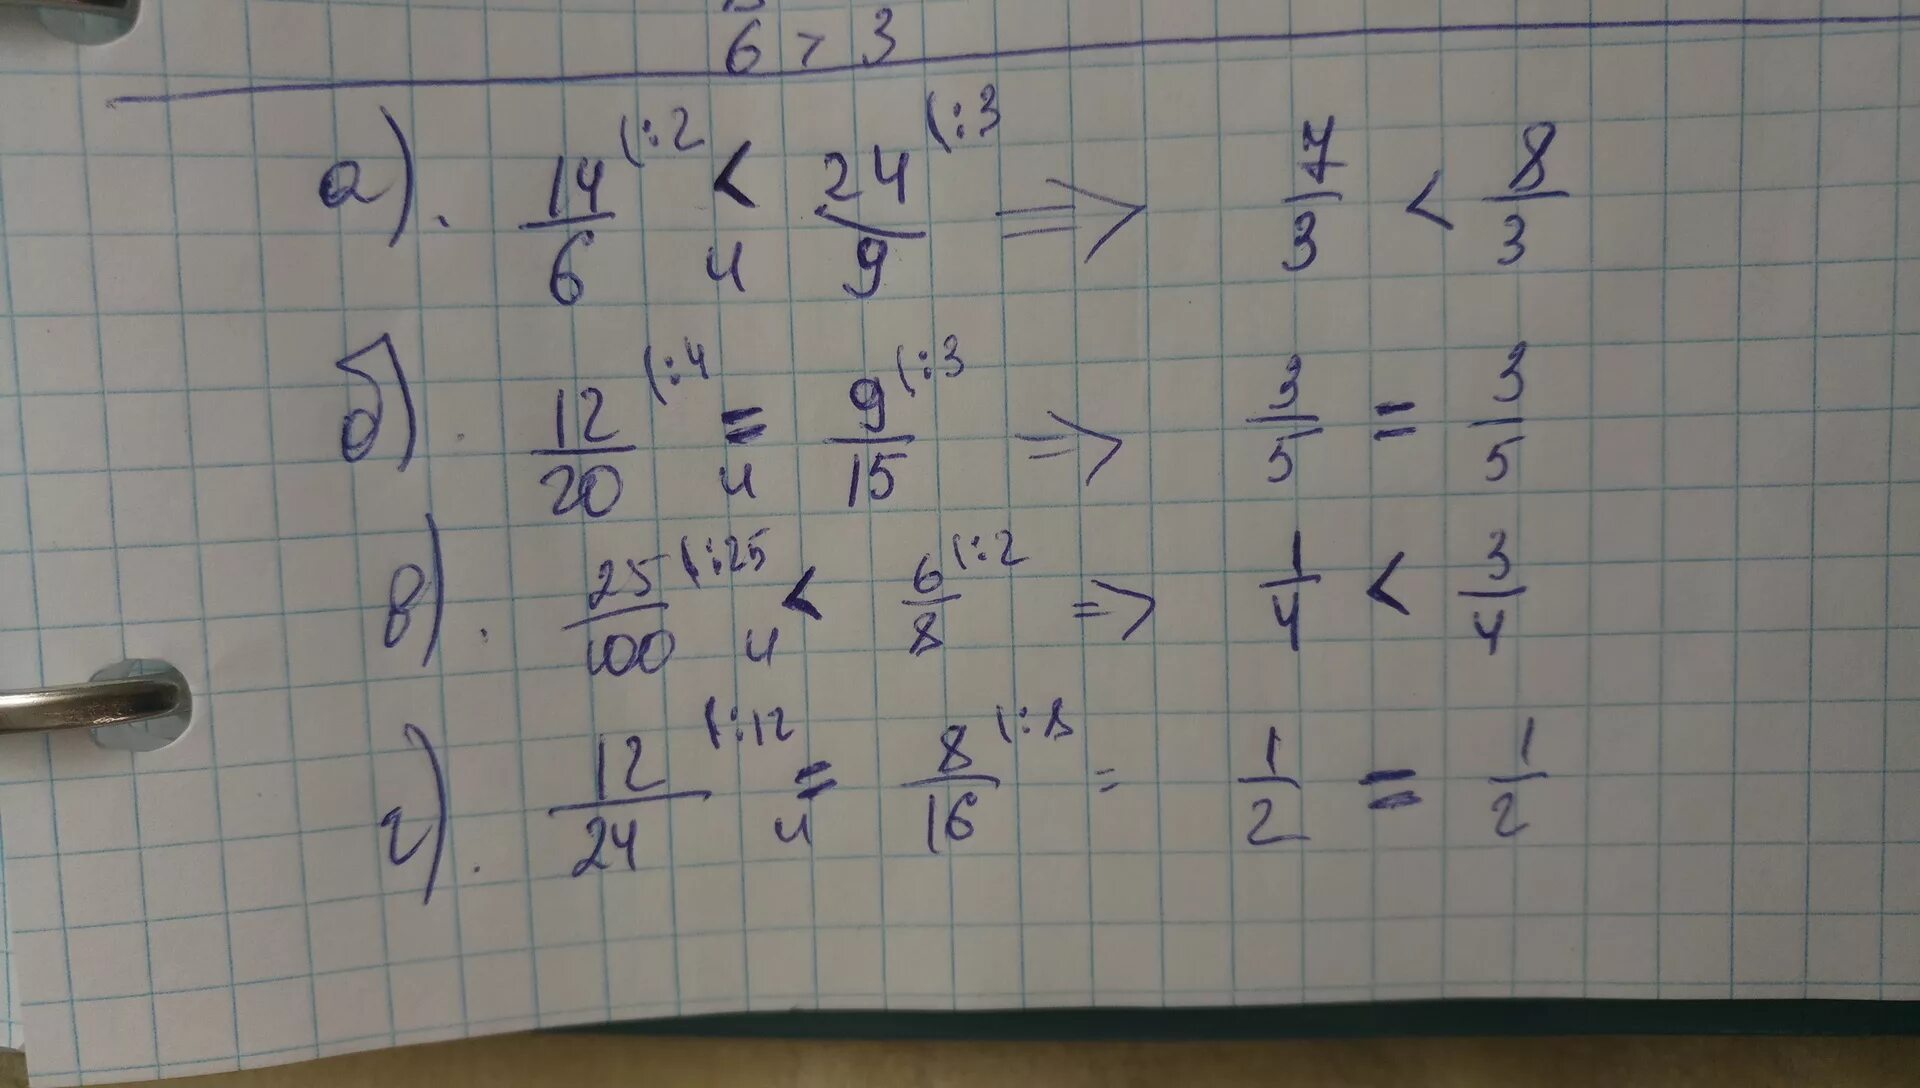 6 > 3
а). 14/6 (:2 < и 24/9 (:3 => 7/3 < 8/3
б). 12/20 (:4 = и 9/15 (:3 => 3/5 = 3/5
в). 25/100 (:25 < и 6/8 (:2 => 1/4 < 3/4
г). 12/24 (:12 = и 8/16 (:8 = 1/2 = 1/2